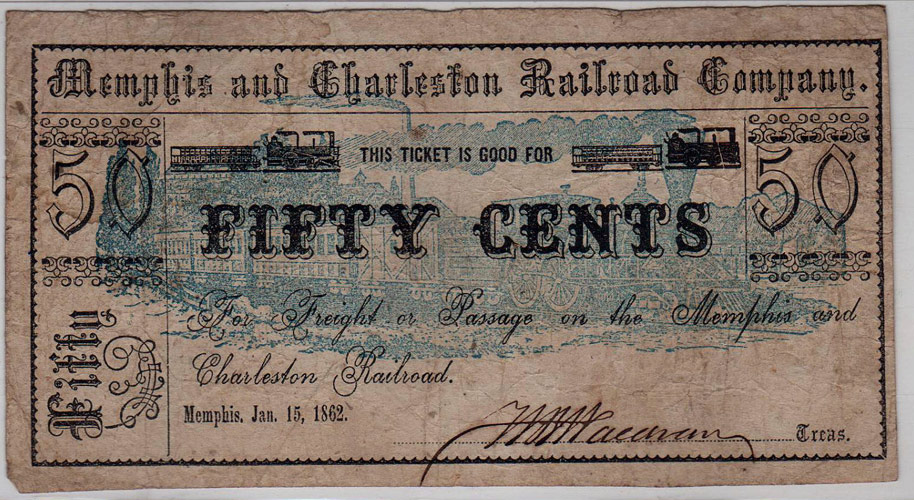 Memphis and Charleston Railroad Company.
50
THIS TICKET IS GOOD FOR
50
FIFTY CENTS
Fifty
For Freight or Passage on the Memphis and
Charleston Railroad.
Memphis, Jan. 15, 1862.
Treas.